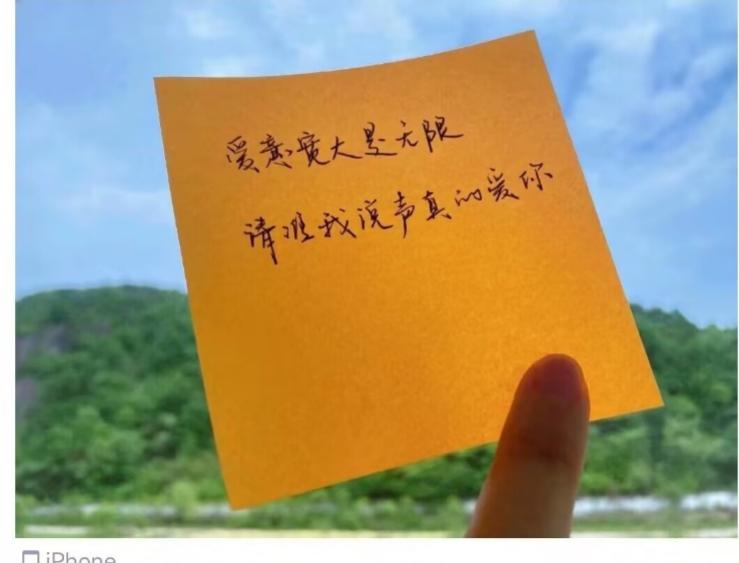 爱意宽大是无限
请准我说声真的爱你
iPhone